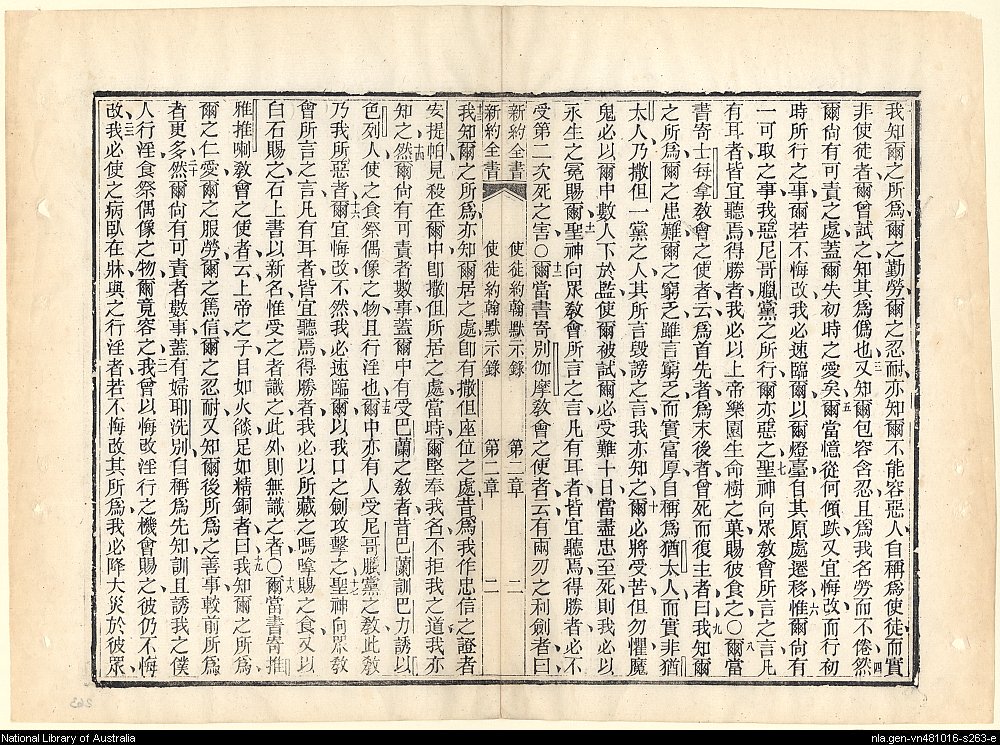 我知爾之所爲爾之勤勞爾之忍耐亦知爾不能容惡人自稱爲使徒而實
非使徒者爾曾試之知其爲僞也三又知爾包容含忍且爲我名勞而不倦然四
爾尙有可責之處蓋爾失初時之愛矣五爾當憶從何傾跌又宜悔改而行初
時所行之事爾若不悔改我必速臨爾以爾燈臺自其原處遷移惟六爾尙有
一可取之事我惡尼哥臘黨之所行爾亦惡之七聖神向眾敎會所言之言凡
有耳者皆宜聽焉得勝者我必以上帝樂園生命樹之菓賜彼食之〇八爾當
書寄士每拿敎會之使者云爲首先者爲末後者曾死而復生者曰九我知爾
之所爲爾之患難爾之窮乏雖言窮乏而實富厚自稱爲猶太人而實非猶
太人乃撒但一黨之人其所言毀謗之言我亦知之十爾必將受苦但勿懼魔
鬼必以爾中數人下於監使爾被試爾必受難十日當盡忠至死則我必以
永生之冕賜爾十一聖神向眾敎會所言之言凡有耳者皆宜聽焉得勝者必不
受第二次死之害〇十二爾當書寄別伽摩敎會之使者云有兩刃之利劍者曰
新約全書 使徒約翰默示錄 第二章 二
新約全書 使徒約翰默示錄 第二章 二
十三我知爾之所爲亦知爾居之處卽有撒但座位之處昔爲我作忠信之證者
安提帕見殺在爾中卽撒但所居之處當時爾堅奉我名不拒我之道我亦
知之十四然爾尙有可責者數事蓋爾中有受巴蘭之敎者昔巴蘭訓巴力誘以
色列人使之食祭偶像之物且行淫也十五爾中亦有人受尼哥臘黨之敎此敎
乃我所惡者十六爾宜悔改不然我必速臨爾以我口之劍攻擊之十七聖神向眾敎
會所言之言凡有耳者皆宜聽焉得勝者我必以所藏之嗎嗱賜之食又以
白石賜之石上書以新名惟受之者識之此外則無識之者〇十八爾當書寄推
雅推喇敎會之使者云上帝之子目如火燄足如精銅者曰十九我知爾之所爲
爾之仁愛爾之服勞爾之篤信爾之忍耐又知爾後所爲之善事較前所爲
者更多二十然爾尙有可責者數事蓋有婦耶洗別自稱爲先知訓且誘我之僕
人行淫食祭偶像之物爾竟容之二一我曾以悔改淫行之機會賜之彼仍不悔
改二二我必使之病臥在牀與之行淫者若不悔改其所爲我必降大災於彼二三眾
National Library of Australia
nla.gen-vn481016-s263-e